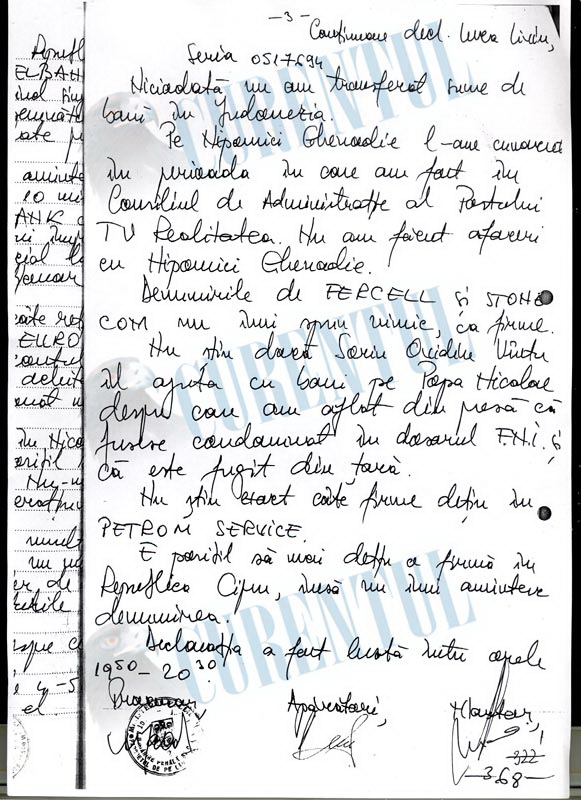 — 3 —
Continuare decl. Luca Liviu,
Seria 0517694
Niciodată nu am transferat sume de
bani în Indonezia.
Pe Hipomici Ghenadie l-am cunoscut
în perioada în care am fost în
Consiliul de Administrație al Postului
TV Realitatea. Nu am făcut afaceri
cu Hipomici Ghenadie.
Denumirile de FERCELL și STONE
COM nu îmi spun nimic, ca firme.
Nu știu dacă Sorin Ovidiu Vîntu
îl ajută cu bani pe Popa Nicolae
despre care am aflat din presă că
fusese condamnat în dosarul F.N.I. și
că este fugit din țară.
Nu știu exact câte firme dețin în
PETROM SERVICE.
E posibil să mai dețin o firmă în
Republica Cipru, însă nu îmi amintesc
denumirea.
Declarația a fost luată între orele
19 50 – 20 30
Procuror, Apărători, Martor,
322
—368—
CURENTUL
CURENTUL
CURENTUL